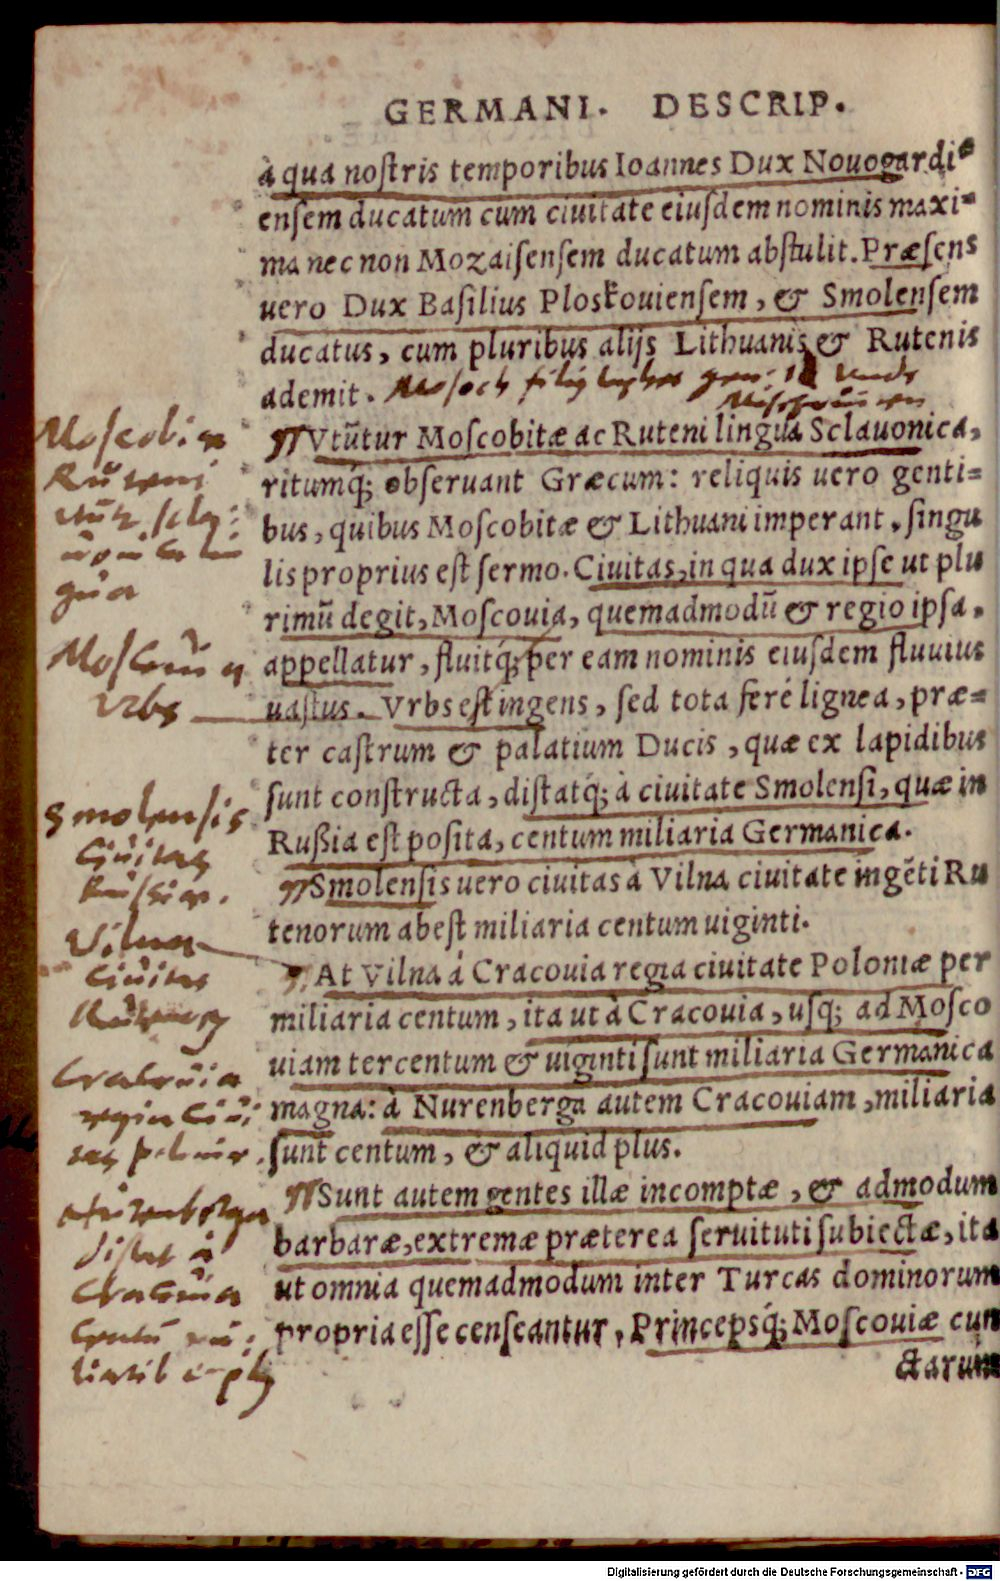 GERMANI. DESCRIP.
à qua nostris temporibus Ioannes Dux Nouogardi=
ensem ducatum cum ciuitate eiusdem nominis maxi=
ma nec non Mozaisensem ducatum abstulit. Præsens
uero Dux Basilius Ploskouiensem, & Smolensem
ducatus, cum pluribus alijs Lithuanis & Rutenis
ademit. Mosoch
Moscobitæ
Ruteni
gua
Moscouia
Vrbs
Smolensis
Ciuitas
Russiæ.
Vilna
Ciuitas
Rutenorum
Cracouia
regia Ciui:
tas poloniæ.
Nurenberga
distat à
Cracouia
Centū mi:
¶Vtūtur Moscobitæ ac Ruteni lingua Sclauonica,
ritumq́; obseruant Græcum: reliquis uero genti=
bus, quibus Moscobitæ & Lithuani imperant, singu
lis proprius est sermo. Ciuitas, in qua dux ipse ut plu
rimū degit, Moscouia, quemadmodū & regio ipsa,
appellatur, fluitq́; per eam nominis eiusdem fluuius
uastus. Vrbs est ingens, sed tota feré lignea, præ=
ter castrum & palatium Ducis, quæ ex lapidibus
sunt constructa, distatq́; à ciuitate Smolensi, quæ in
Rußia est posita, centum miliaria Germanica.
¶Smolensis uero ciuitas à Vilna ciuitate ingēti Ru
tenorum abest miliaria centum uiginti.
¶At Vilna á Cracouia regia ciuitate Poloniæ per
miliaria centum, ita ut à Cracouia, usq; ad Mosco
uiam tercentum & uiginti sunt miliaria Germanica
magna: à Nurenberga autem Cracouiam, miliaria
sunt centum, & aliquid plus.
¶Sunt autem gentes illæ incomptæ, & admodum
barbaræ, extremæ præterea seruituti subiectæ, ita
ut omnia quemadmodum inter Turcas dominorum
propria esse censeantur, Princepsq́; Moscouiæ cun
ctarum
Digitalisierung gefördert durch die Deutsche Forschungsgemeinschaft - DFG